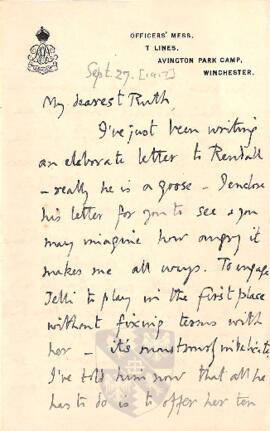 OFFICERS' MESS,
T LINES,
AVINGTON PARK CAMP,
WINCHESTER.
Sept. 27. [1917]
My dearest Ruth,
I've just been writing
an elaborate letter to Rendall
– really he is a goose – I enclose
his letter for you to see & you
may imagine how angry it
makes me all ways. To engage
Jelli to play in the first place
without fixing terms with
her – it's monstrous
I've told him now that all he
has to do is to offer her ten